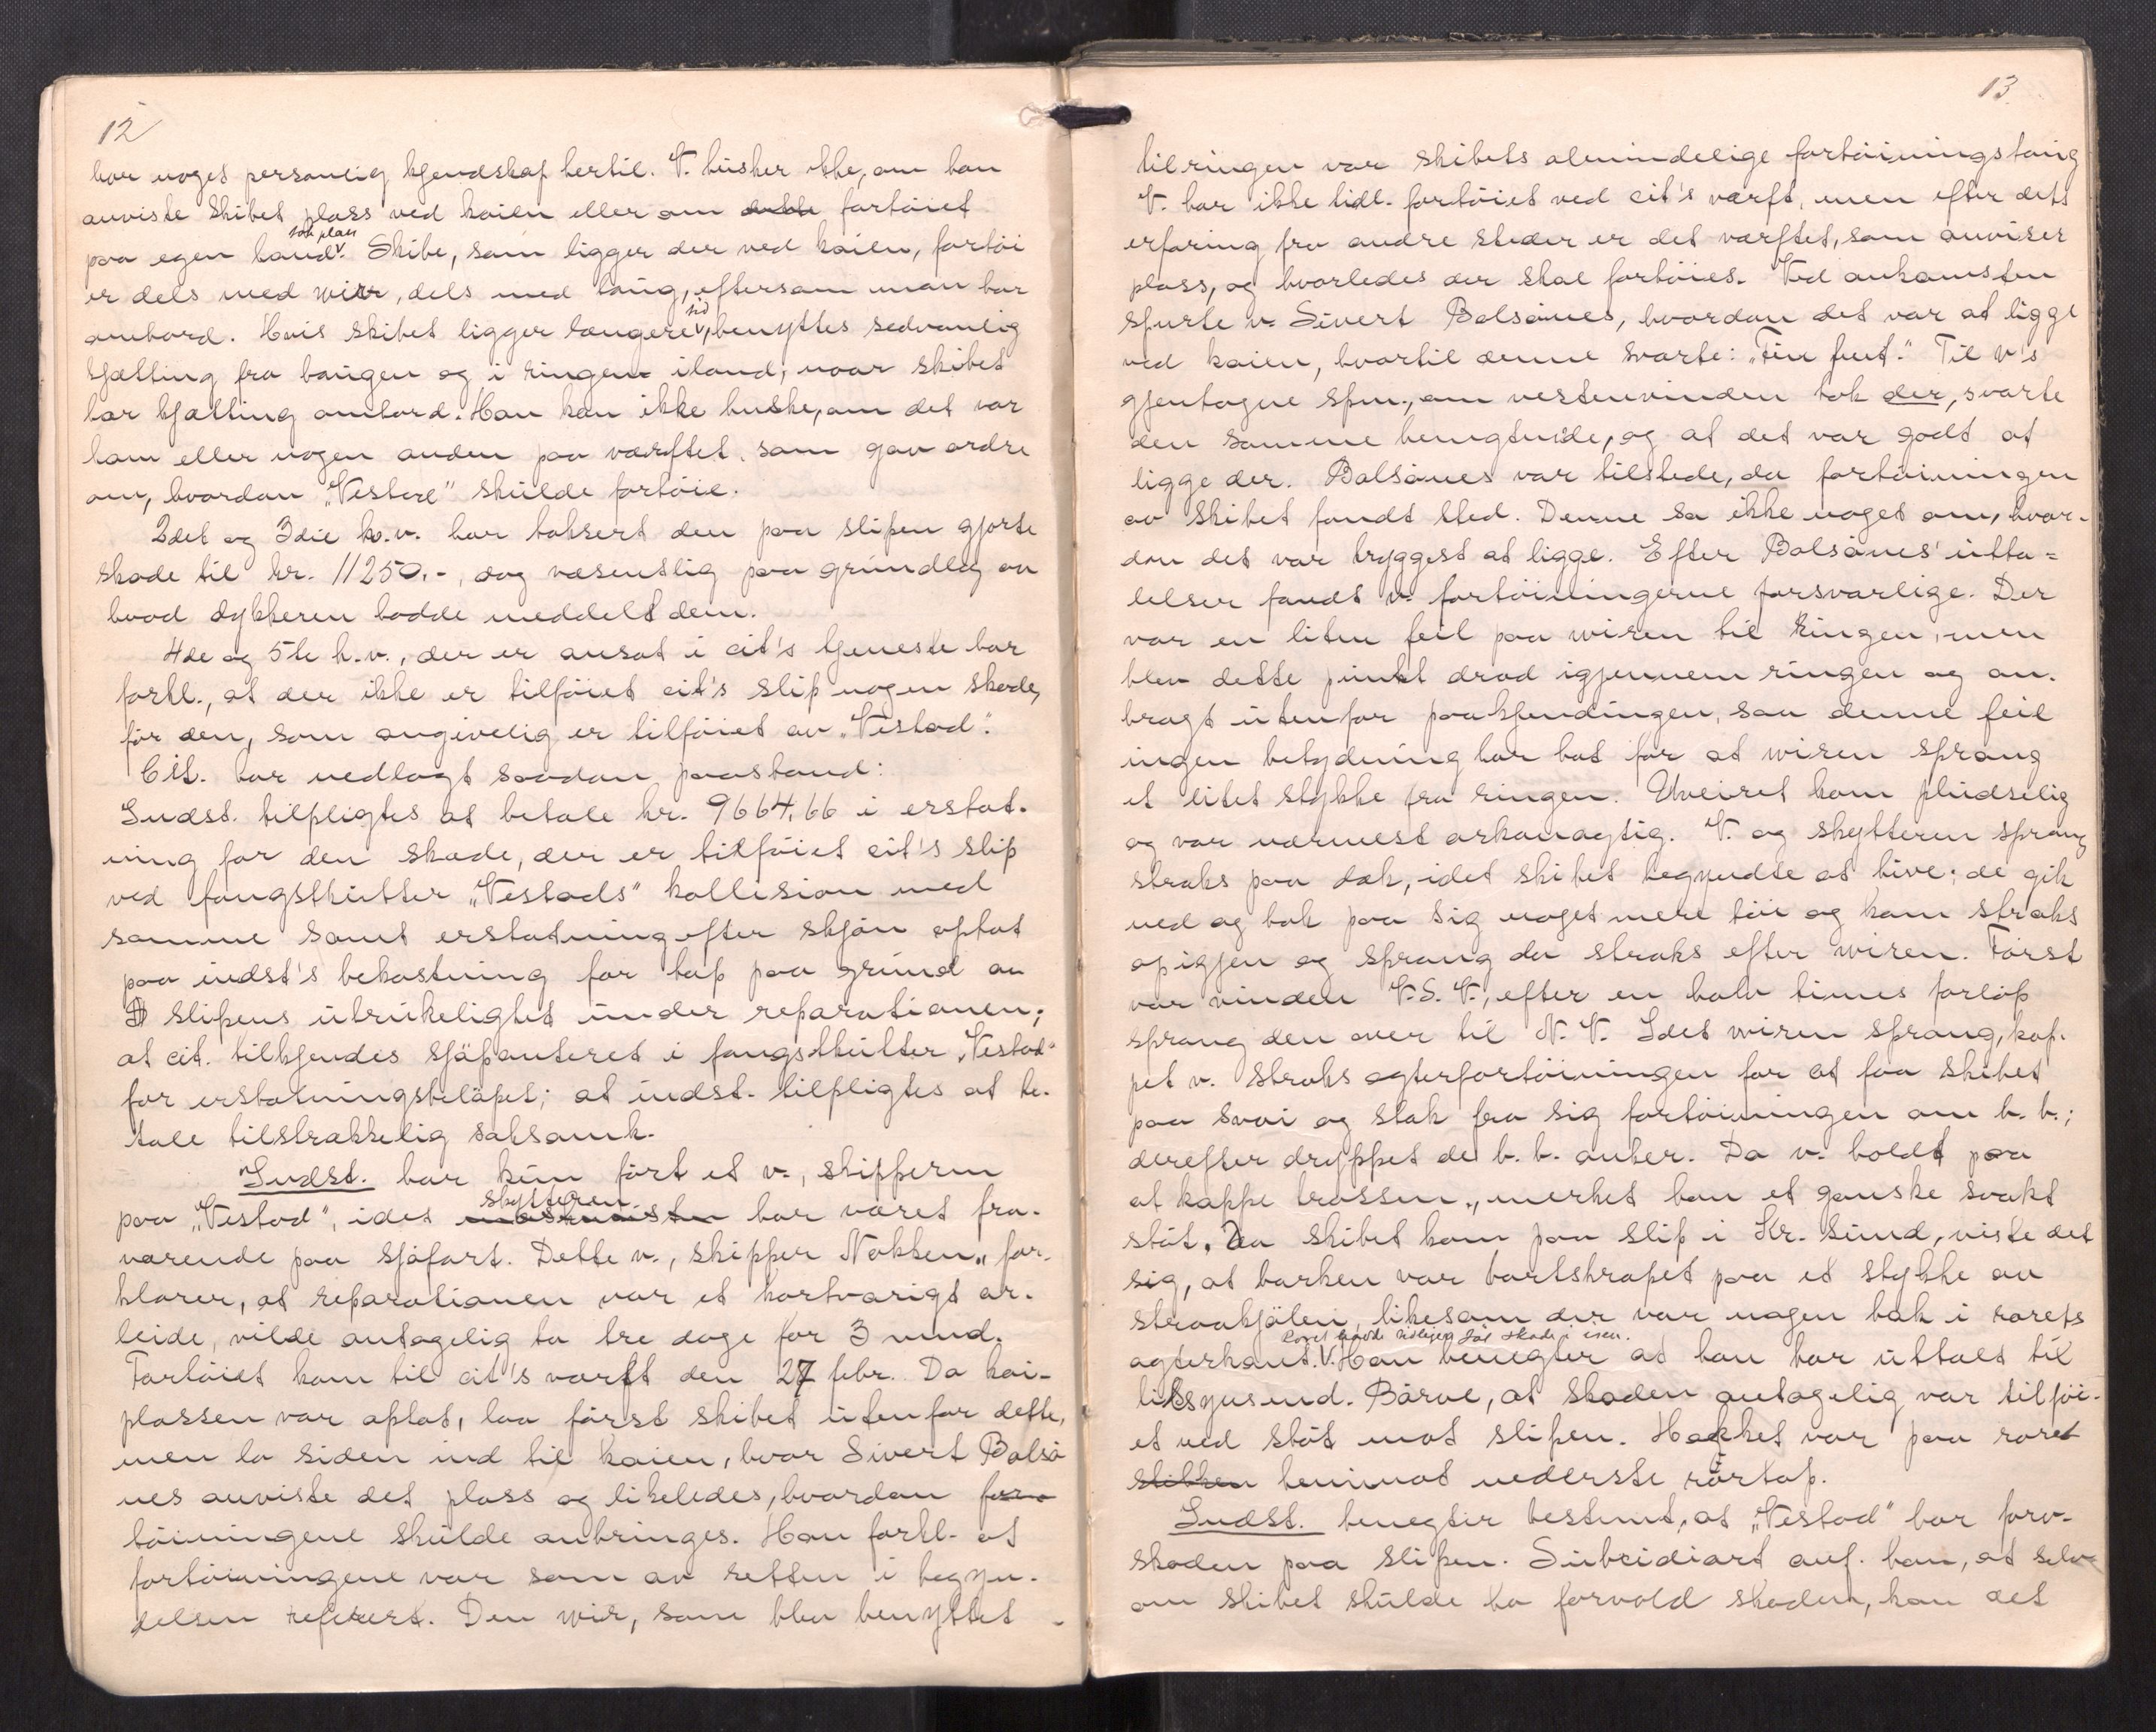 12
har noget personlig kjendskap hertil. V. husker ikke, om han
anviste skibet plass ved kaien eller om dette fortöiet
paa egen haand tok plass. Skibe, som ligger der ved kaien, fortöi
er dels med wirer, dels med taug, eftersom man har
ombord. Hvis skibet ligger længere tid, benyttes sedvanlig
kjætting fra baugen og i ringen iland, naar skibet
har kjætting ombord. Han kan ikke huske, om det var
ham eller nogen anden paa værftet, som gav ordre
om, hvordan „Vestad" skulde fortöie.
2det og 3die h.v. har taksert den paa slipen gjorte
skade til kr. 11250.-, dog væsentlig paa grundlag av
hvad dykkeren hadde meddelt dem.
4de og 5te h.v., der er ansat i cit's tjeneste har
forkl., at der ikke er tilföiet cit's slip nogen skade,
för den, som angivelig er tilföiet av „Vestad".
Cit. har nedlagt saadan paastand:
Indst. tilpligtes at betale kr. 9664,66 i erstat-
ning for den skade, der er tilföiet cit's slip
ved fangstkutter „Vestads" kollision med
samme samt erstatning efter skjön optat
paa indst's bekostning for tap paa grund av
slipens ubrukelighet under reparationen;
at cit. tilkjendes sjöpanteret i fangstkutter „Vestad"
for erstatningsbelöpet; at indst. tilpligtes at be-
tale tilstrækkelig saksomk.
Indst. har kun fört et v., skipperen
paa „Vestad", idet maskinisten skytteren har været fra-
værende paa sjöfart. Dette v., skipper Nekken, for-
klarer, at reparationen var et kortvarigt ar-
beide, vilde antagelig ta tre dage for 3 mand.
Fartöiet kom til cit's værft den 27 febr. Da kai-
plassen var optat, laa först skibet utenfor dette,
men la siden ind til kaien, hvor Sivert Bolsö
nes anviste det plass og likeledes, hvordan for-
töiningene skulde anbringes. Han forkl. at
fortöiningene var som av retten i begyn-
delsen referert. Den wir, som blev benyttet
13
til ringen var skibets almindelige fortöiningstaug
V. har ikke tidl. fortöiet ved cit's værft, men efter dets
erfaring fra andre steder er det værftet, som anviser
plass, og hvorledes der skal fortöies. Ved ankomsten
spurte v. Sivert Bolsönes, hvordan det var at ligge
ved kaien, hvortil denne svarte: „Fin fint." Til v's
gjentagne spm., om vestenvinden tok der, svarte
den samme benegtende, og at det var godt at
ligge der. Bolsönes var tilstede, da fortöiningen
av skibet fandt sted. Denne sa ikke noget om, hvor-
dan det var tryggest at ligge. Efter Bolsönes' utta-
lelser fandt v. fortöiningerne forsvarlige. Der
var en liten feil paa wiren til ringen, men
blev dette punkt drad igjennem ringen og an-
bragt utenfor paakjendingen, saa denne feil
ingen betydning har hat for at wiren sprang
et litet stykke fra ringen. Uveiret kom pludselig
og var nærmest orkanagtig. V. og skytteren sprang
straks paa dæk, idet skibet begyndte at hive; de gik
ned og tok paa sig noget mere töi og kom straks
op igjen og sprang da straks efter wiren. Först
var vinden V.S.V., efter en halv times forlöp
sprang den over til N.V. Idet wiren sprang, kap-
pet v. straks agterfortöiningen for at faa skibet
paa svai og stak fra sig fortöiningen om b.b.;
derefter droppet de b.b. anker. Da v. holdt paa
at kappe trossen, merket han et ganske svakt
stöt. Da skibet kom paa slip i Kr. sund, viste det
sig, at barken var bortskrapet paa et stykke av
straakjölen, likesom der var nogen hak i rorets
agterkant. Roret hadde tidligere faat skade i isen. Han benegter at han har uttalt til
tilsynsmd. Bärve, at skaden antagelig var tilföi-
et ved stöt mot slipen. Hakket var paa roret
slikken henimot nederste rörtap.
Indst. benegter bestemt, at „Vestad" har forv.
skaden paa slipen. Subsidiært anf. han, at selv
om skibet skulde ha forvold skaden, kan det